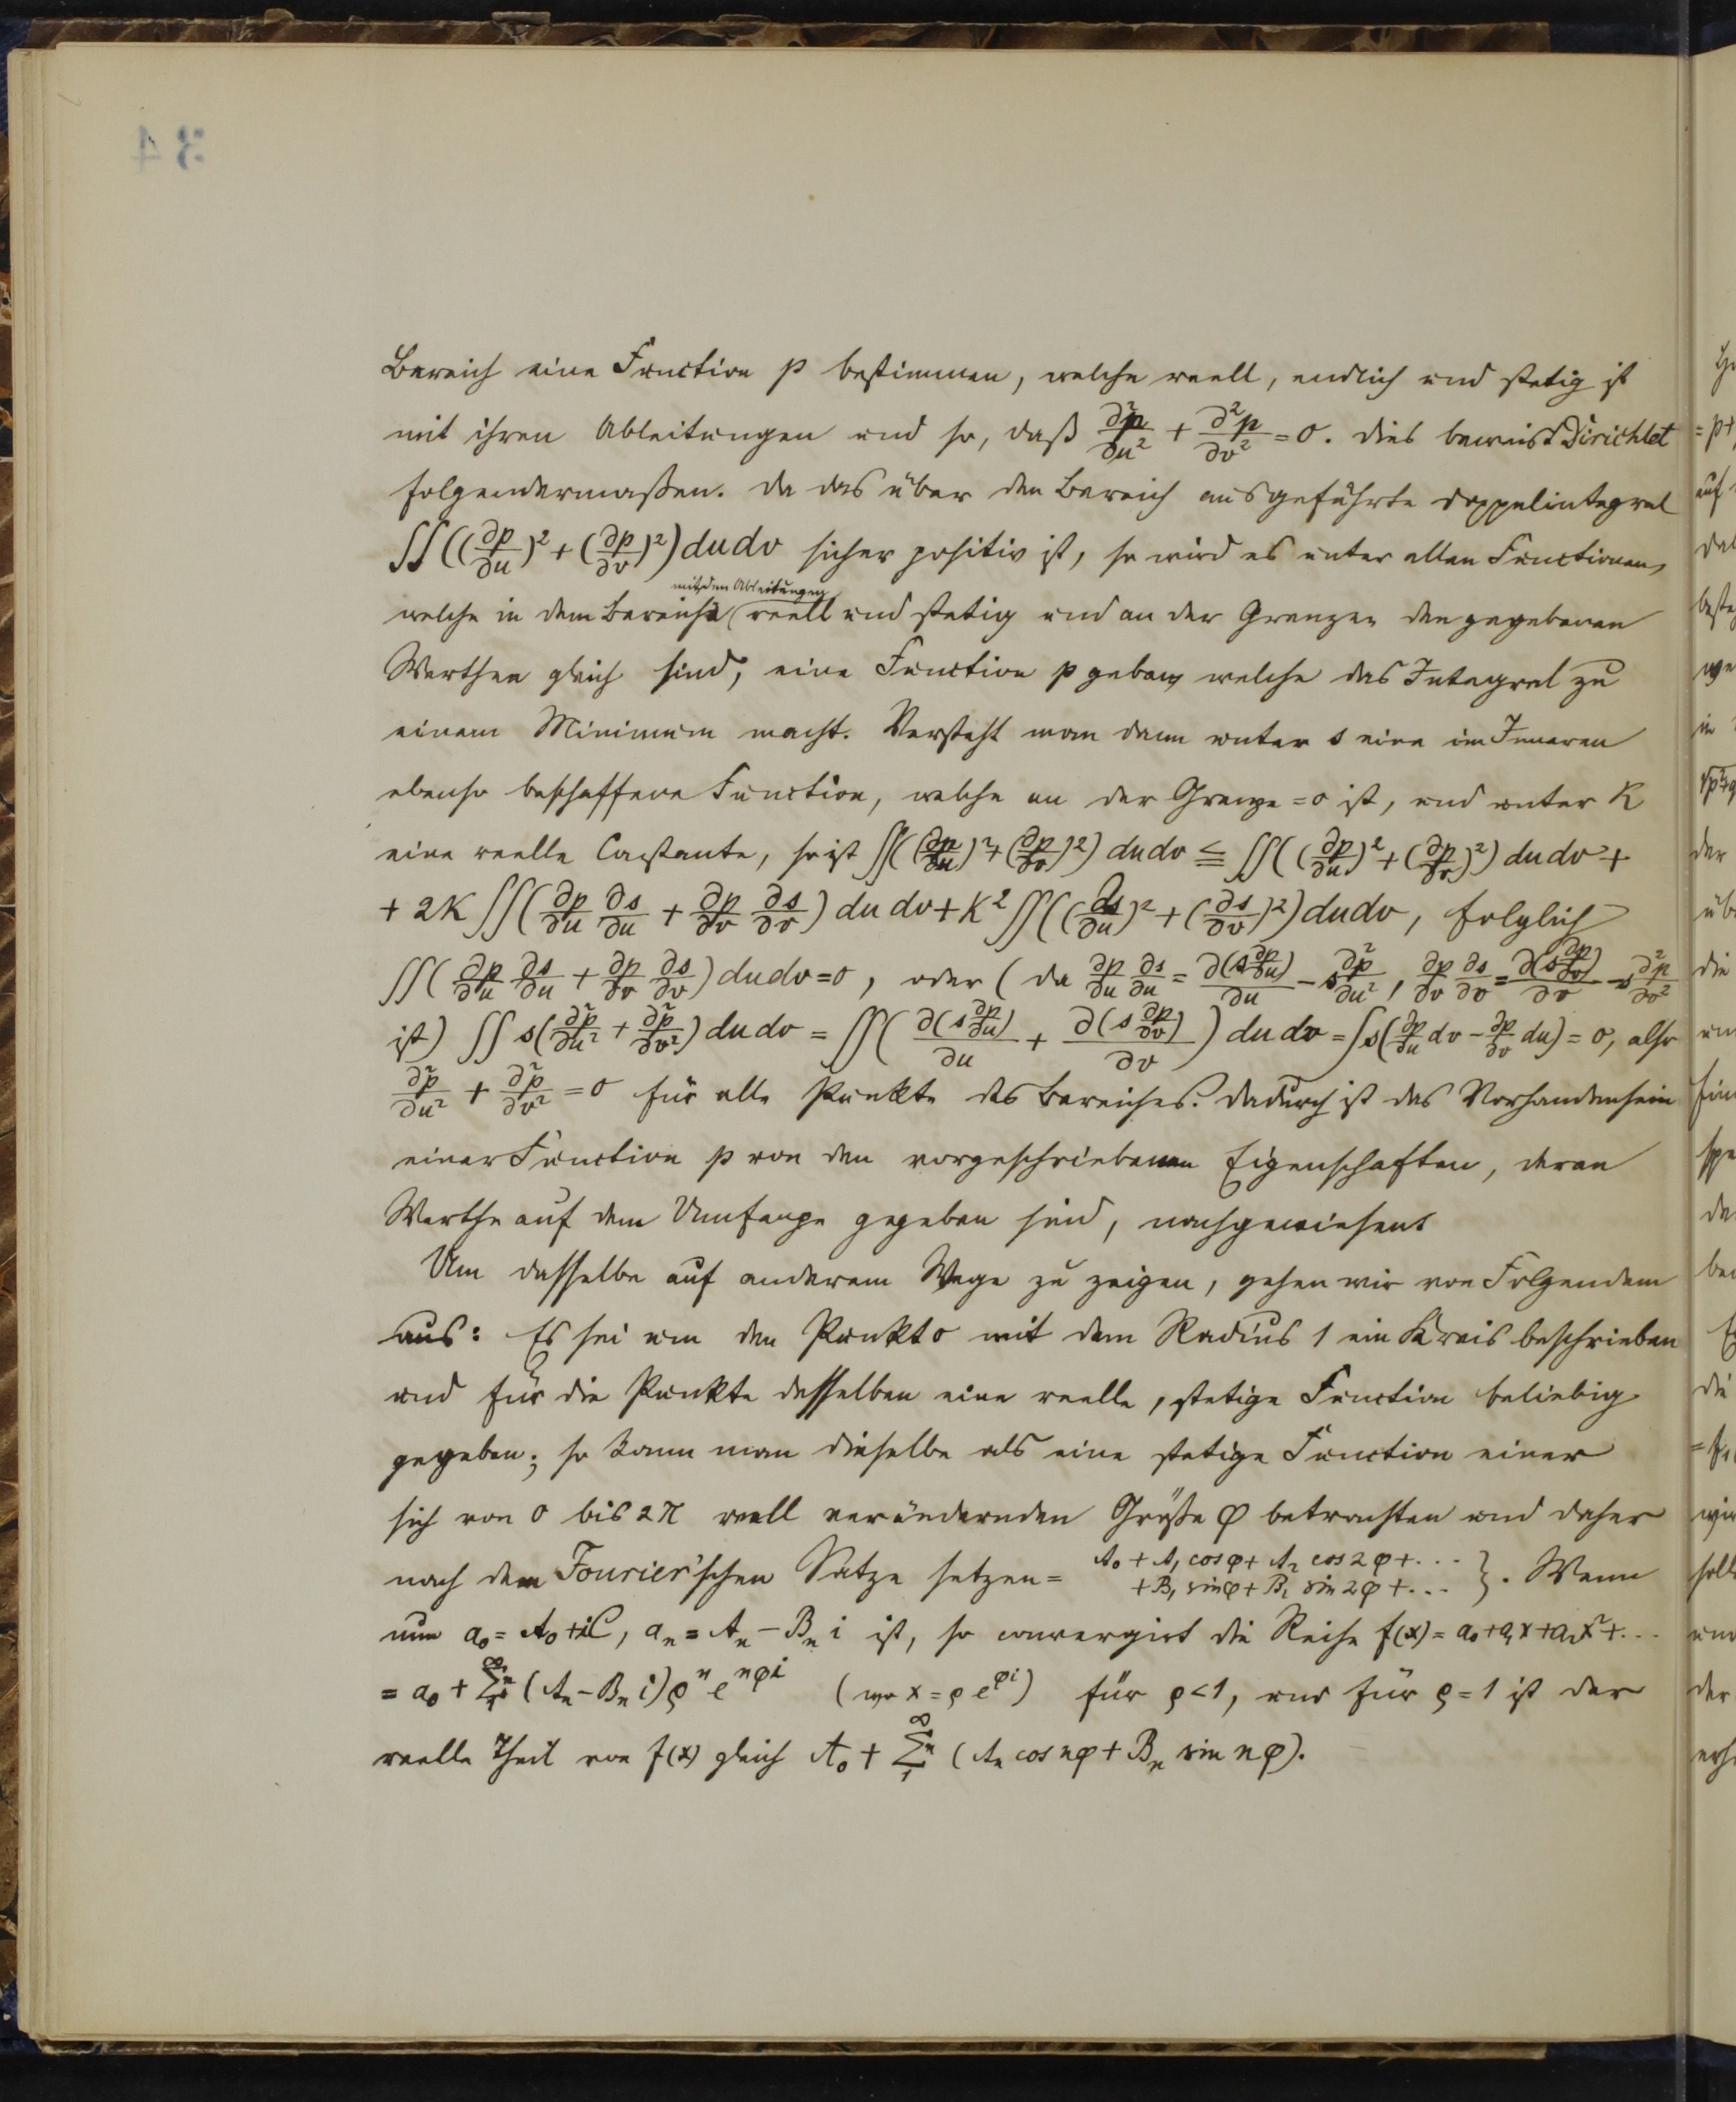 34
Bereich eine Function p bestimmen, welche reell, endlich und stetig ist
mit ihren Ableitungen und so, daß ∂²p/∂u² + ∂²p/∂v² = 0. Dies beweist Dirichlet
folgendermaßen. Da das über den Bereich ausgeführte Doppelintegral
∬((∂p/∂u)² + (∂p/∂v)²) du dv sicher positiv ist, so wird es unter allen Functionen,
mit den Ableitungen
welche in dem Bereiche reell und stetig und an der Grenze den gegebenen
Werthen gleich sind, eine Function p geben, welche das Integral zu
einem Minimum macht. Versteht man dann unter s eine im Inneren
ebenso beschaffene Function, welche an der Grenze = 0 ist, und unter K
eine reelle Constante, so ist ∬((∂p/∂u)² + (∂p/∂v)²) du dv ≦ ∬((∂p/∂u)² + (∂p/∂v)²) du dv +
+ 2K ∬(∂p/∂u ∂s/∂u + ∂p/∂v ∂s/∂v) du dv + K² ∬((∂s/∂u)² + (∂s/∂v)²) du dv, folglich
∬(∂p/∂u ∂s/∂u + ∂p/∂v ∂s/∂v) du dv = 0, oder (da ∂p/∂u ∂s/∂u = ∂(s ∂p/∂u)/∂u − s ∂²p/∂u², ∂p/∂v ∂s/∂v = ∂(s ∂p/∂v)/∂v − s ∂²p/∂v²
ist) ∬ s(∂²p/∂u² + ∂²p/∂v²) du dv = ∬(∂(s ∂p/∂u)/∂u + ∂(s ∂p/∂v)/∂v) du dv = ∫s(∂p/∂u dv − ∂p/∂v du) = 0, also
∂²p/∂u² + ∂²p/∂v² = 0 für alle Punkte des Bereiches. Dadurch ist das Vorhandensein
einer Function p von den vorgeschriebenen Eigenschaften, deren
Werthe auf dem Umfange gegeben sind, nachgewiesen.
Um dasselbe auf anderem Wege zu zeigen, gehen wir von Folgendem
aus: Es sei um den Punkt 0 mit dem Radius 1 ein Kreis beschrieben
und für die Punkte desselben eine reelle, stetige Function beliebig
gegeben; so kann man dieselbe als eine stetige Function einer
sich von 0 bis 2π reell verändernden Größe φ betrachten und daher
nach dem Fourier'schen Satze setzen = A₀ + A₁ cos φ + A₂ cos 2φ + ...
+ B₁ sin φ + B₂ sin 2φ + ... }. Wenn
nun a₀ = A₀ + iC, aₙ = Aₙ − Bₙ i ist, so convergirt die Reihe f(x) = a₀ + a₁x + a₂x² + ...
= a₀ + ∑ₙ (Aₙ − Bₙ i) ρⁿ e^{nφi} (wo x = ρ e^{φi}) für ρ < 1, und für ρ = 1 ist der
reelle Theil von f(x) gleich A₀ + ∑ₙ (Aₙ cos nφ + Bₙ sin nφ).